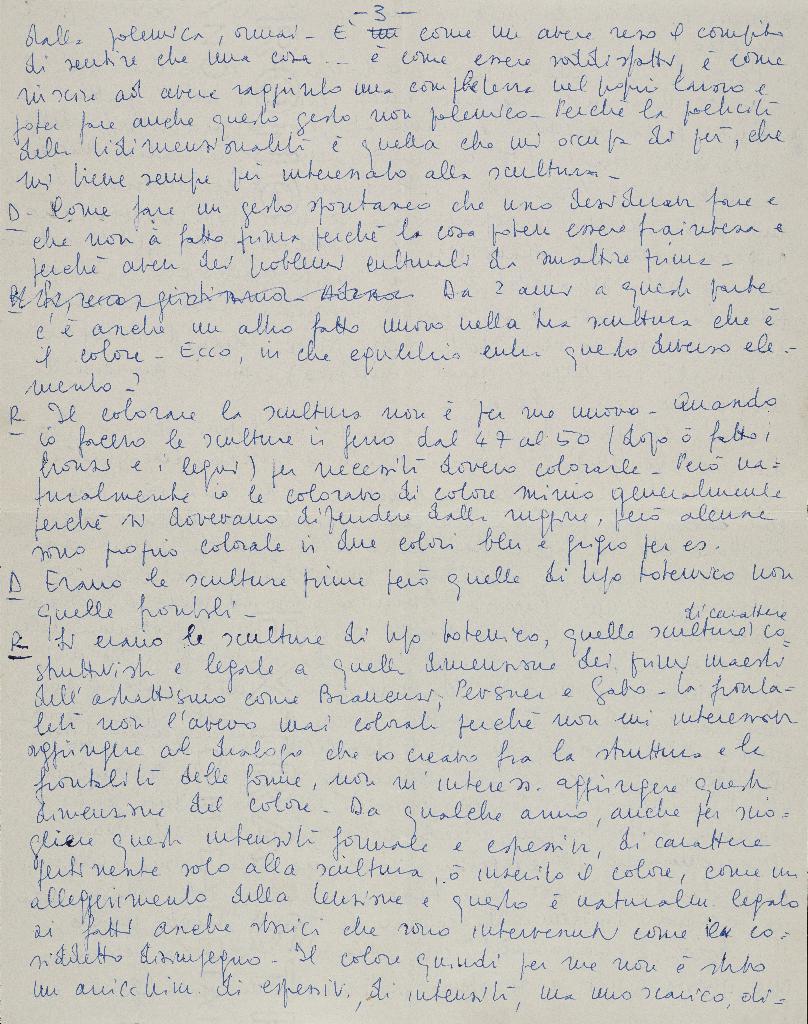 - 3 -
dalla polemica, ormai - E' come un avere reso il compito
di sentire che una cosa ... è come essere soddisfatti, è come
riuscire ad avere raggiunto una completezza nel proprio lavoro e
poter fare anche questo gesto non polemico - Perché la
della bidimensionalità è quella che mi occupa di più, che
mi tiene sempre più interessato alla scultura -
D - Come fare un gesto spontaneo che uno desiderava fare e
che non à fatto prima perché la cosa poteva essere fraintesa e
perché aveva dei problemi culturali da smaltire prima -
Da 2 anni a questa parte
c'è anche un altro fatto nuovo nella tua scultura che è
il colore - Ecco, in che equilibrio entra questo diverso ele-
mento?
R Il colorare la scultura non è per me nuovo - Quando
io facevo le sculture in ferro dal 47 al 50 (dopo ò fatto i
bronzi e i legni) per necessità dovevo colorarle - Però na=
turalmente io le coloravo di colore minio generalmente
perché si dovevano difendere dalla ruggine, però alcune
sono proprio colorate in due colori blu e grigio per es.
D Erano le sculture prime però quelle di tipo totemico non
quelle frontali -
R Si erano le sculture di tipo totemico, quelle sculture di carattere co=
struttivista e legate a quella dimensione dei primi maestri
dell'astrattismo come Brancusi, Pevsner e Gabo - la fronta=
lità non l'avevo mai colorata perché non mi interessava
aggiungere al dialogo che io creavo fra la struttura e la
frontalità delle forme, non m'interess. aggiungere questa
dimensione del colore - Da qualche anno, anche per scio=
gliere questa intensità formale e espressiva, di carattere
pertinente solo alla scultura, ò inserito il colore, come un
alleggerimento della tensione e questo è naturalm. legato
ai fatti anche storici che sono intervenuti come il co=
sidetto disimpegno - Il colore quindi per me non è stato
un arricchim. di espressiv., di intensità, ma uno scarico, di-